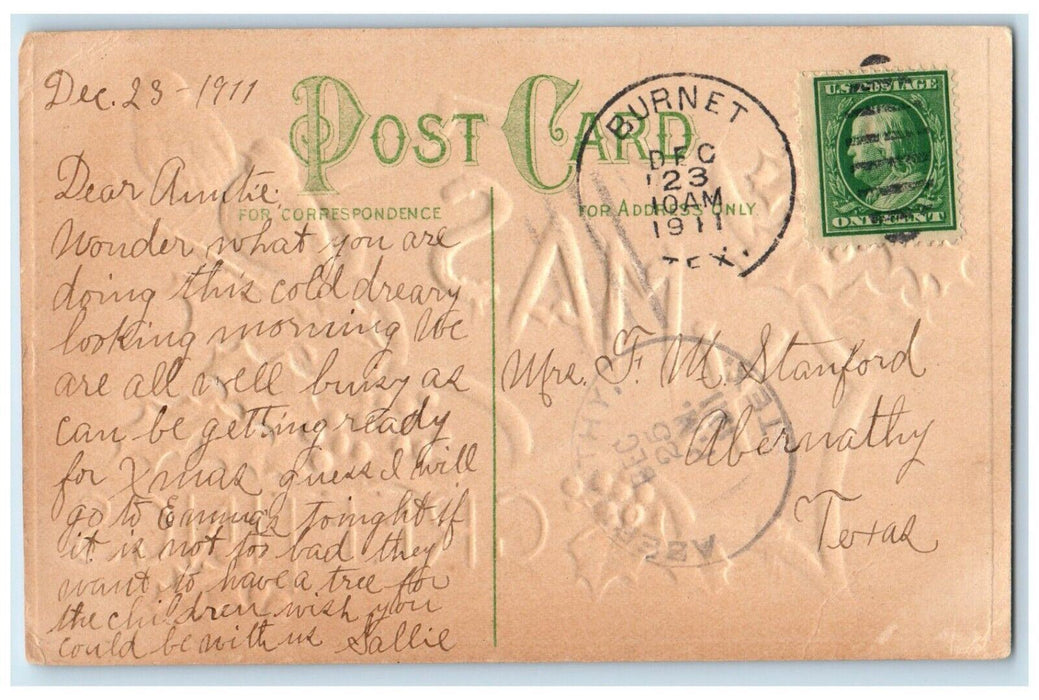 Dec. 23 - 1911
POST CARD
FOR CORRESPONDENCE
FOR ADDRESS ONLY
BURNET
DEC
23
10AM
1911
TEX.
U.S. POSTAGE
ONE CENT
Dear Auntie;
Wonder what you are
doing this cold dreary
looking morning We
are all well busy as
can be getting ready
for Xmas guess I will
go to Emma's tonight if
it is not too bad they
want to have a tree for
the children wish you
could be with us Sallie
Mrs. F. M. Stanford
Abernathy
Texas
DEC